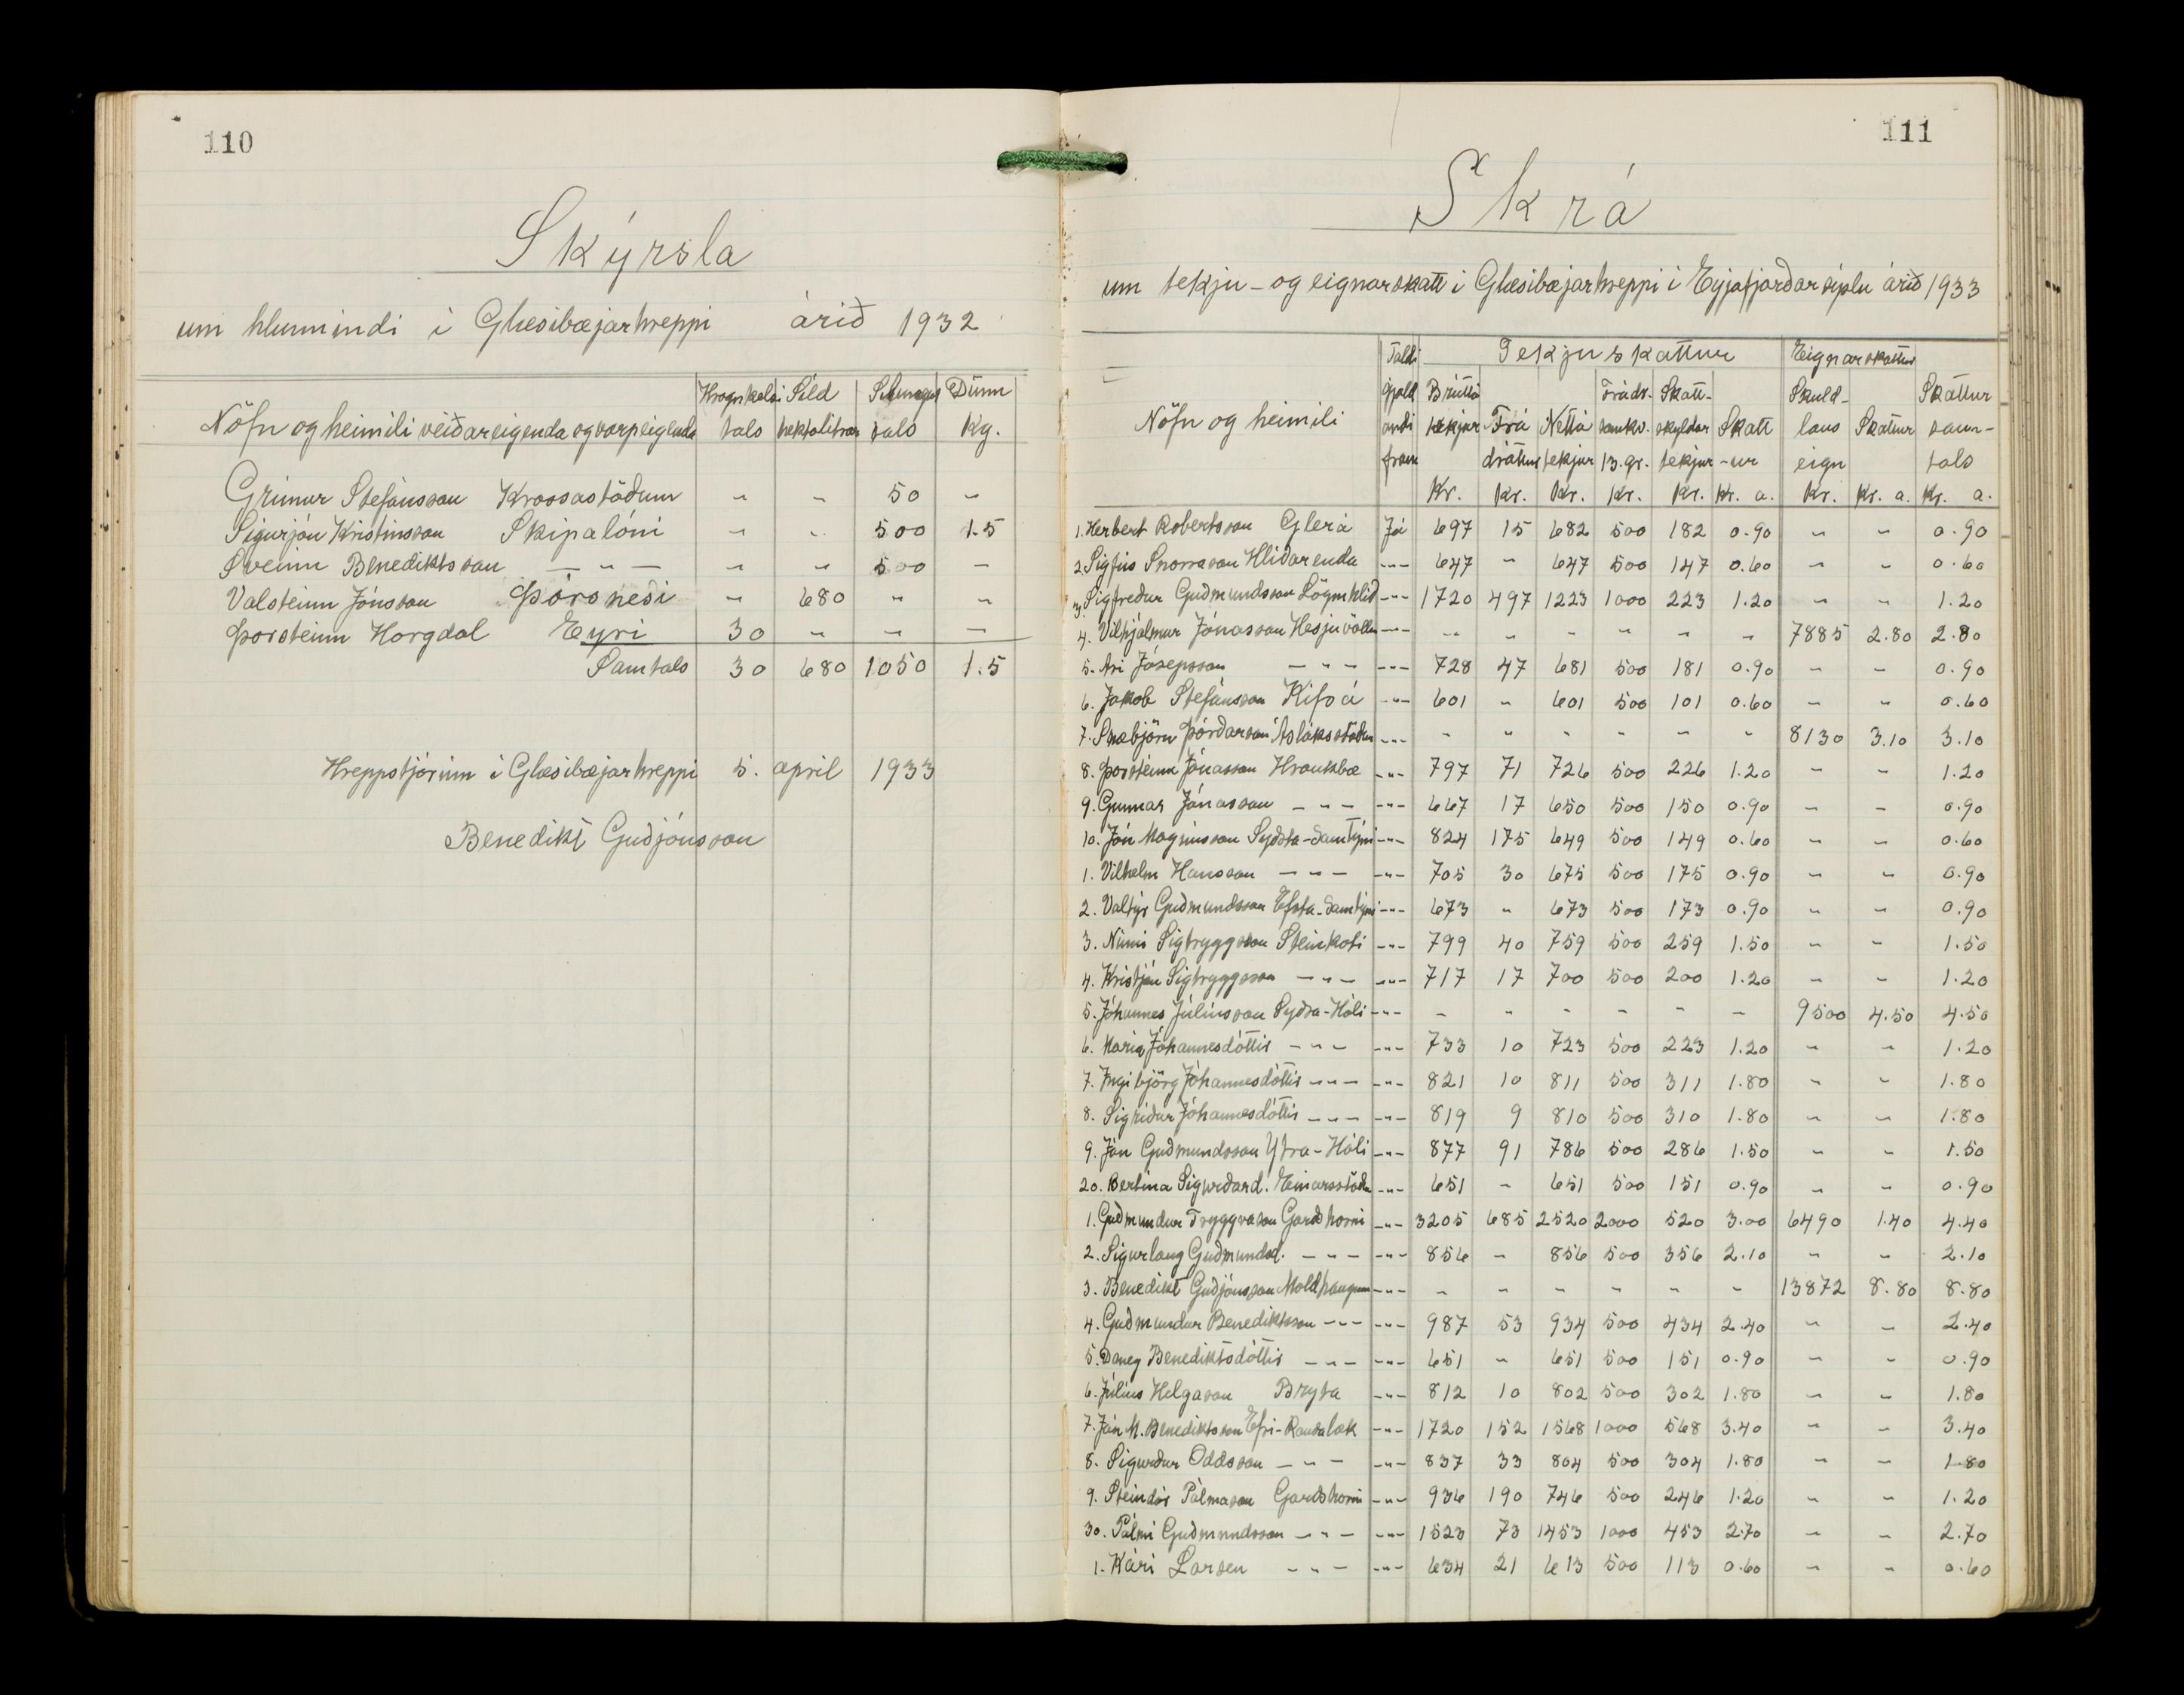 110
Skýrsla
um hlunnindi í Glæsibæjarhreppi árið 1932
Nöfn og heimili veiðareigenda og varpeigenda Hrognkelsi tals Síld hektolítrar Silungur tals Dúnn Kg.
Grímur Stefánsson Krossastöðum " " 50 "
Sigurjón Kristinsson Skipalóni " " 500 1.5
Sveinn Benediktsson — " — " " 500 —
Valsteinn Jónsson Þórsnesi " 680 " "
Þorsteinn Hörgdal Eyri 30 " " —
Samtals 30 680 1050 1.5
Hreppstjórinn í Glæsibæjarhreppi 5. apríl 1933
Benedikt Guðjónsson
111
Skrá
um tekju- og eignarskatt í Glæsibæjarhreppi í Eyjafjarðarsýslu árið 1933
Taldi Tekjuskattur Eignarskattur
Nöfn og heimili gjaldandi fram Brúttó tekjur Frádráttur Nettó tekjur Frádr. samkv. 13. gr. Skattskyldar tekjur Skattur Skuldlaus eign Skattur Skattur samtals
Kr. Kr. Kr. Kr. Kr. Kr. a. Kr. Kr. a. Kr. a.
1. Herbert Robertsson Glerá Já 697 15 682 500 182 0.90 " " 0.90
2. Sigfús Snorrason Hlíðarenda -"- 647 " 647 500 147 0.60 " " 0.60
3. Sigfreður Guðmundsson Lögmhlíð -"- 1720 497 1223 1000 223 1.20 " " 1.20
4. Vilhjálmur Jónasson Hesjuvöllum -"- " " " " " " 7885 2.80 2.80
5. Ari Jósepsson — " — -"- 728 47 681 500 181 0.90 " " 0.90
6. Jakob Stefánsson Kífsá -"- 601 " 601 500 101 0.60 " " 0.60
7. Snæbjörn Þórðarson Ásláksstöðum -"- " " " " " " 8130 3.10 3.10
8. Þorsteinn Jónasson Hraukbæ -"- 797 71 726 500 226 1.20 " " 1.20
9. Gunnar Jónasson — " — -"- 667 17 650 500 150 0.90 " " 0.90
10. Jón Magnússon Syðsta-Samtýni -"- 824 175 649 500 149 0.60 " " 0.60
1. Vilhelm Hansson — " — -"- 705 30 675 500 175 0.90 " " 0.90
2. Valtýr Guðmundsson Efsta-Samtýni -"- 673 " 673 500 173 0.90 " " 0.90
3. Númi Sigtryggsson Steinkoti -"- 799 40 759 500 259 1.50 " " 1.50
4. Kristján Sigtryggsson — " — -"- 717 17 700 500 200 1.20 " " 1.20
5. Jóhannes Júlíusson Syðra-Hóli -"- " " " " " " 9500 4.50 4.50
6. María Jóhannesdóttir — " — -"- 733 10 723 500 223 1.20 " " 1.20
7. Ingibjörg Jóhannesdóttir — " — -"- 821 10 811 500 311 1.80 " " 1.80
8. Sigríður Jóhannesdóttir — " — -"- 819 9 810 500 310 1.80 " " 1.80
9. Jón Guðmundsson Ytra-Hóli -"- 877 91 786 500 286 1.50 " " 1.50
20. Bertína Sigurðard. Einarsstöðum -"- 651 " 651 500 151 0.90 " " 0.90
1. Guðmundur Tryggvason Garðshorni -"- 3205 685 2520 2000 520 3.00 6490 1.40 4.40
2. Sigurlaug Guðmundsd. — " — -"- 856 " 856 500 356 2.10 " " 2.10
3. Benedikt Guðjónsson Moldhaugum -"- " " " " " " 13872 8.80 8.80
4. Guðmundur Benediktsson — " — -"- 987 53 934 500 434 2.40 " " 2.40
5. Dagny Benediktsdóttir — " — -"- 651 " 651 500 151 0.90 " " 0.90
6. Júlíus Helgason Bryta -"- 812 10 802 500 302 1.80 " " 1.80
7. Jón M. Benediktsson Efri-Rauðalæk -"- 1720 152 1568 1000 568 3.40 " " 3.40
8. Sigurður Oddsson — " — -"- 837 33 804 500 304 1.80 " " 1.80
9. Steindór Pálmason Garðshorni -"- 936 190 746 500 246 1.20 " " 1.20
30. Pálmi Guðmundsson — " — -"- 1523 73 1453 1000 453 2.70 " " 2.70
1. Kári Larsen — " — -"- 634 21 613 500 113 0.60 " " 0.60